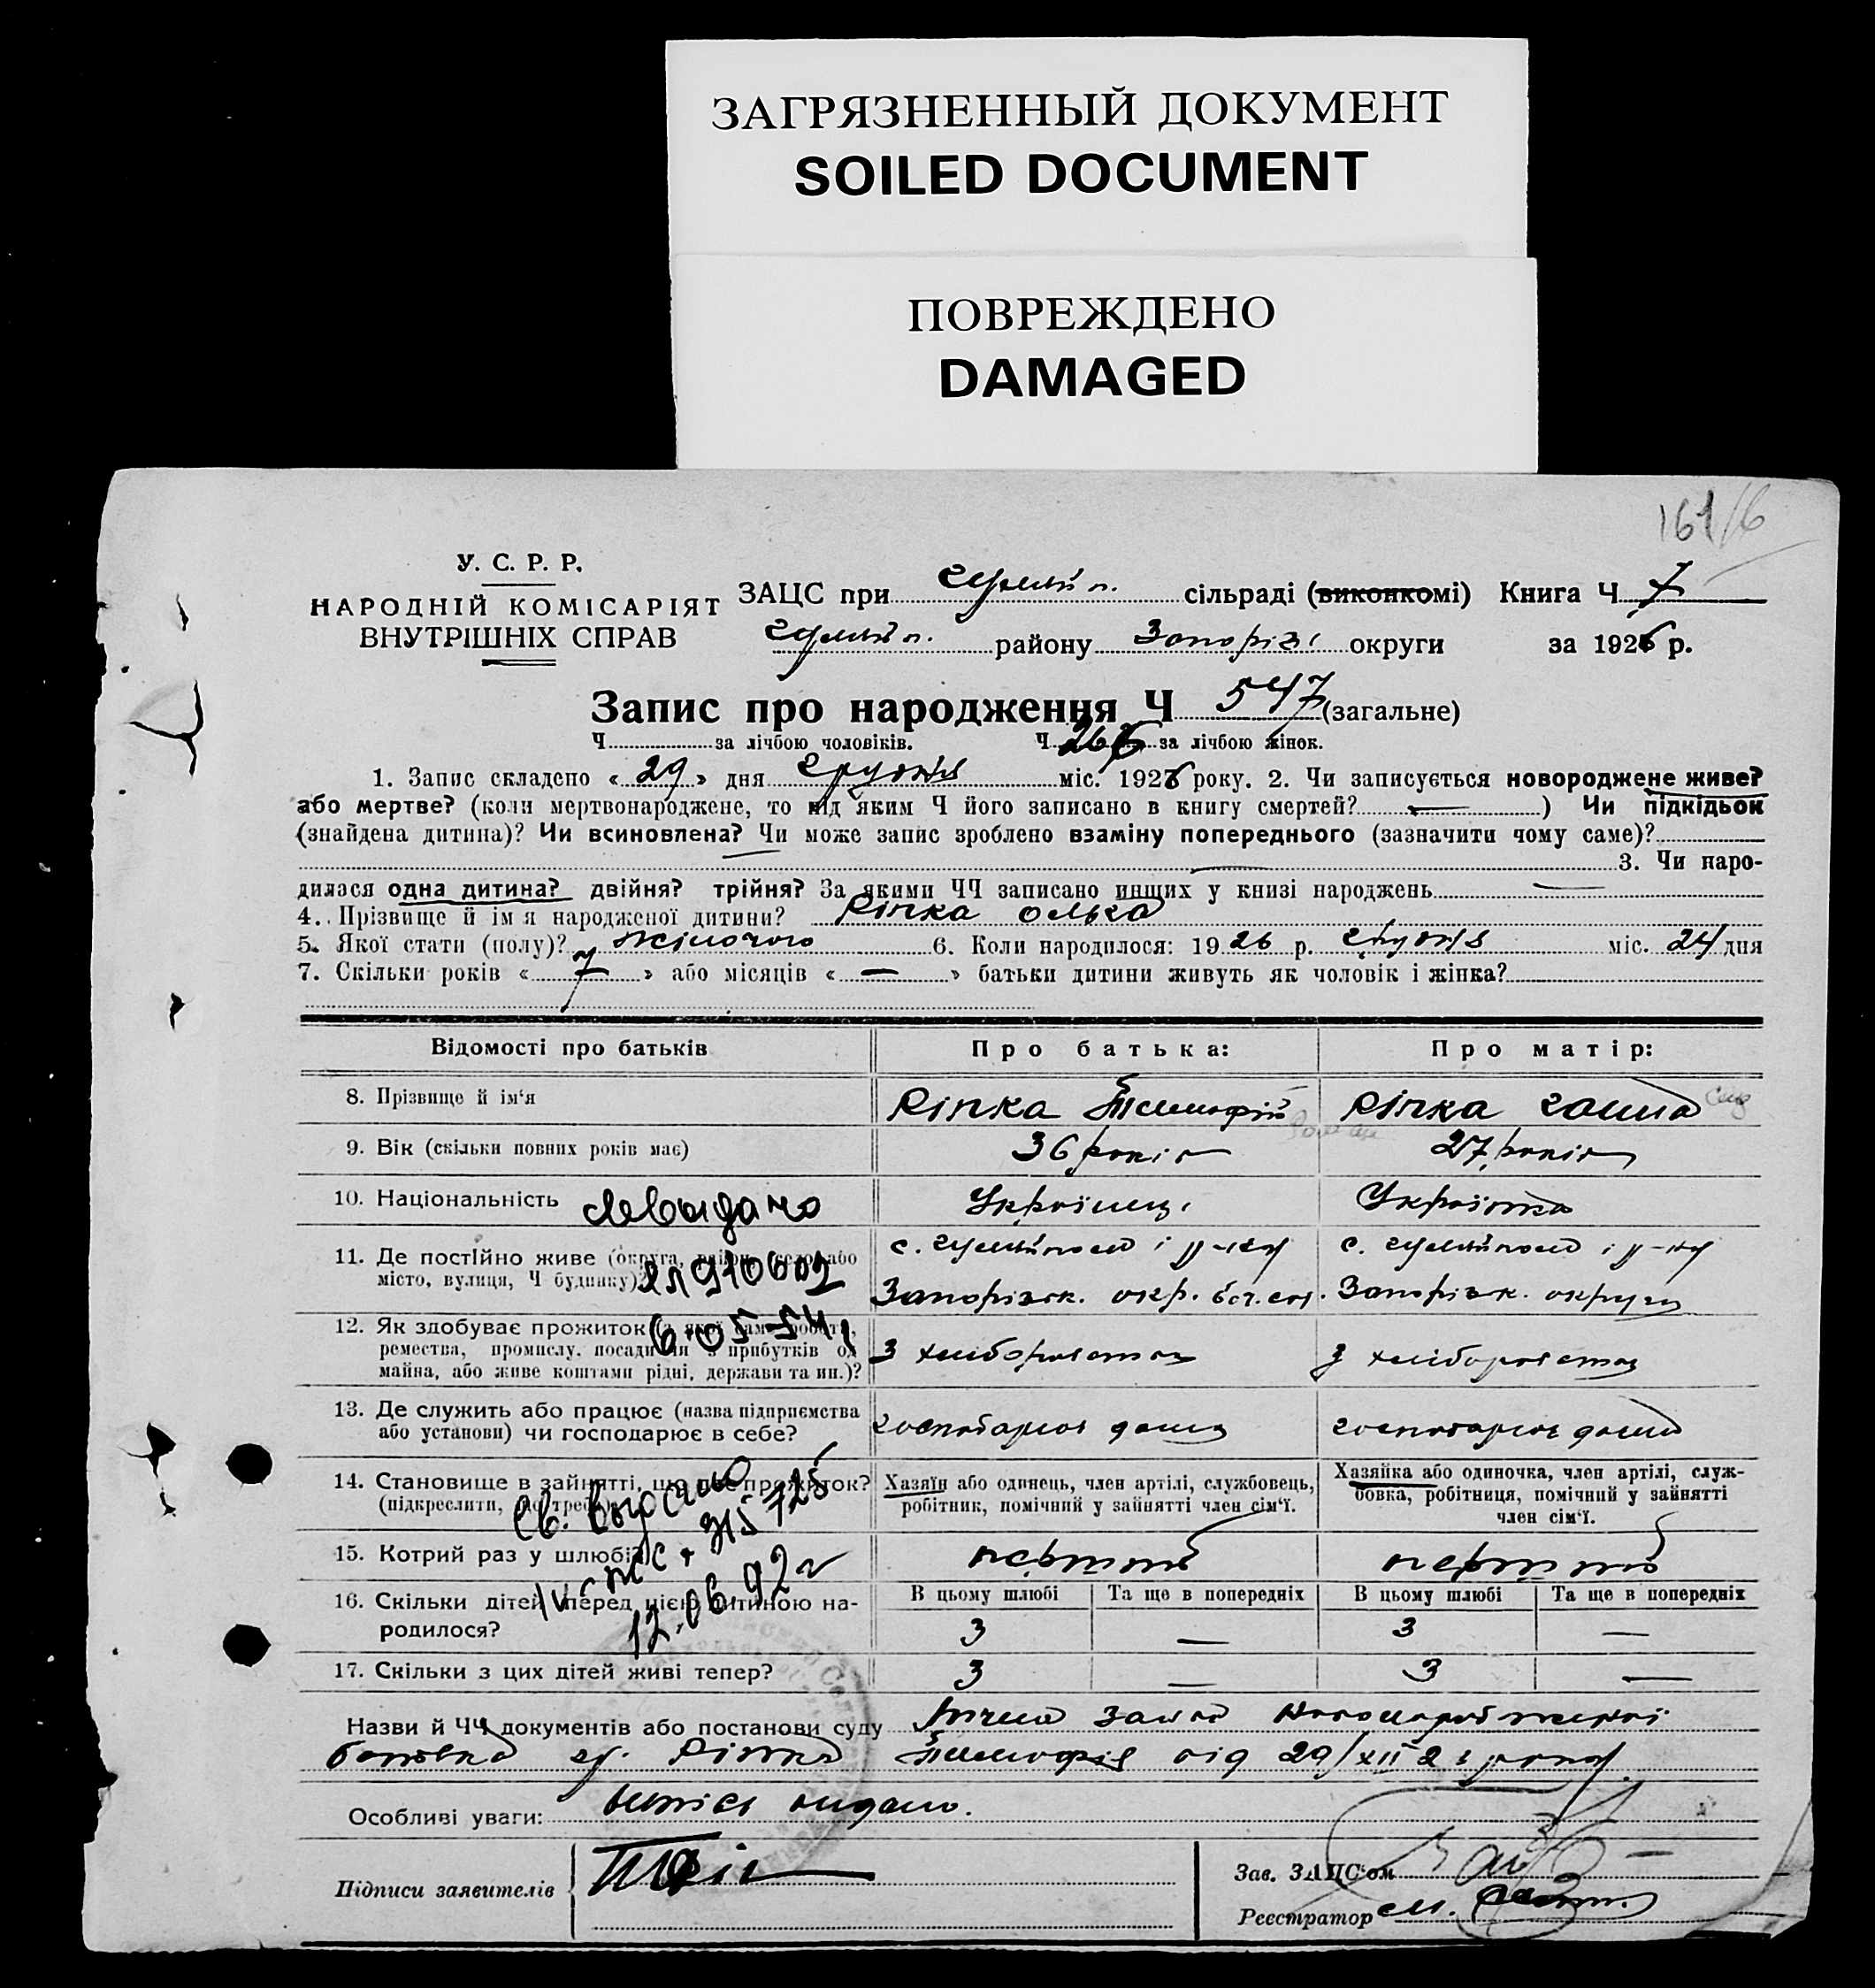 ЗАГРЯЗНЕННЫЙ ДОКУМЕНТ
SOILED DOCUMENT
ПОВРЕЖДЕНО
DAMAGED
161/6
У. С. Р. Р.
НАРОДНІЙ КОМІСАРІЯТ
ВНУТРІШНІХ СПРАВ
ЗАЦС при сільраді (виконкомі) Книга Ч 7
району Запоріз. округи за 1926 р.
Запис про народження Ч 547 (загальне)
Ч за лічбою чоловіків. Ч за лічбою жінок.
1. Запис складено « 29 » дня грудня міс. 1926 року. 2. Чи записується новороджене живе?
або мертве? (коли мертвонароджене, то під яким Ч його записано в книгу смертей? — ) Чи підкідьок
(знайдена дитина)? Чи всиновлена? Чи може запис зроблено взаміну попереднього (зазначити чому саме)?
3. Чи наро-
дилася одна дитина? двійня? трійня? За якими ЧЧ записано инщих у книзі народжень —
4. Прізвище й ім я народженої дитини? Ріпка Олька
5. Якої стати (полу)? жіночого 6. Коли народилося: 1926 р. грудня міс. 24 дня
7. Скільки років « 7 » або місяців « — » батьки дитини живуть як чоловік і жінка?
Відомості про батьків Про батька: Про матір:
8. Прізвище й ім‘я Ріпка Тимофій Ріпка Ганна
9. Вік (скільки повних років має) 36 років 27 років
10. Національність Українец. Українка
11. Де постійно живе (округа, район, село або
місто, вулиця, Ч будинку)? Запорізьк. окр. Запорізьк. округи
12. Як здобуває прожиток (з якої саме роботи,
ремества, промислу, посади чи з прибутків од
майна, або живе коштами рідні, держави та ин.)? З хліборобства З хліборобства
13. Де служить або працює (назва підприємства
або установи) чи господарює в себе? господарює дома господарює дома
14. Становище в зайнятті, що дає прожиток?
(підкреслити, що треба)
Хазяїн або одинець, член артілі, службовець,
робітник, помічний у зайнятті член сім‘ї.
Хазяйка або одиночка, член артілі, служ-
бовка, робітниця, помічний у зайнятті
член сім‘ї.
Св. выдано
12.06.92 г
15. Котрий раз у шлюбі? перший перший
16. Скільки дітей перед цією дитиною на-
родилося?
В цьому шлюбі Та ще в попередніх В цьому шлюбі Та ще в попередніх
3 — 3 —
17. Скільки з цих дітей живі тепер? 3 — 3 —
Назви й ЧЧ документів або постанови суду
Ріпка Тимофія від 29/XII 26 року.
Особливі уваги: видано.
Підписи заявителів
Зав. ЗАЦС‘ом
Реєстратор